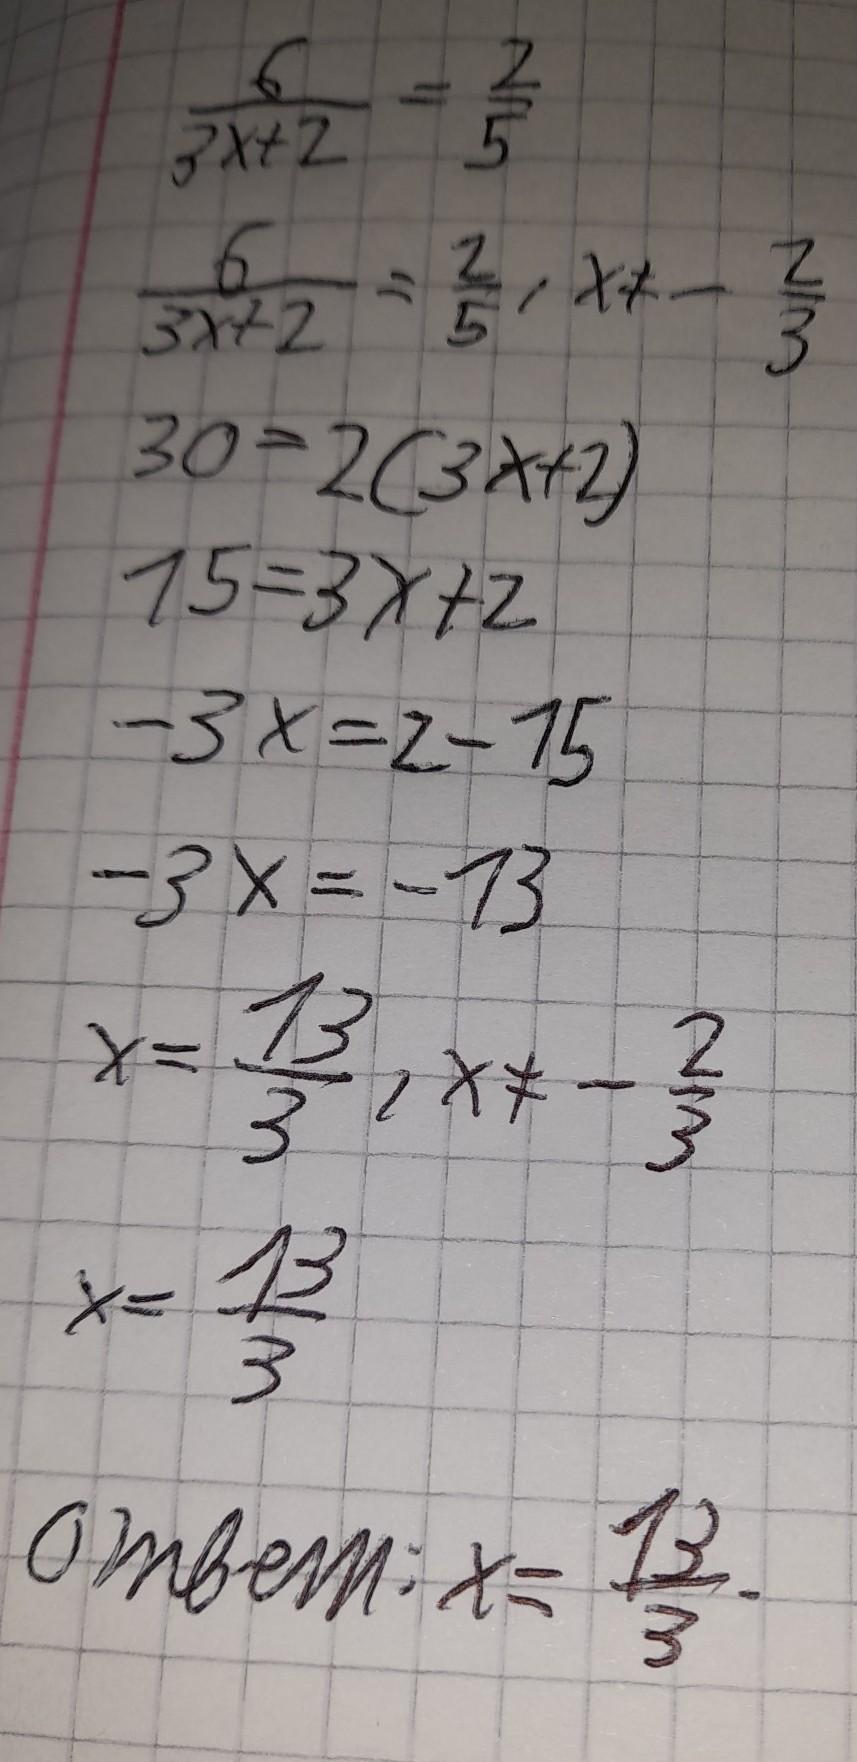 6/(3x+2) = 2/5
6/(3x+2) = 2/5, x≠ - 2/3
30=2(3x+2)
15=3x+2
-3x=2-15
-3x=-13
x= 13/3, x≠ - 2/3
x= 13/3
Ответ: x= 13/3.